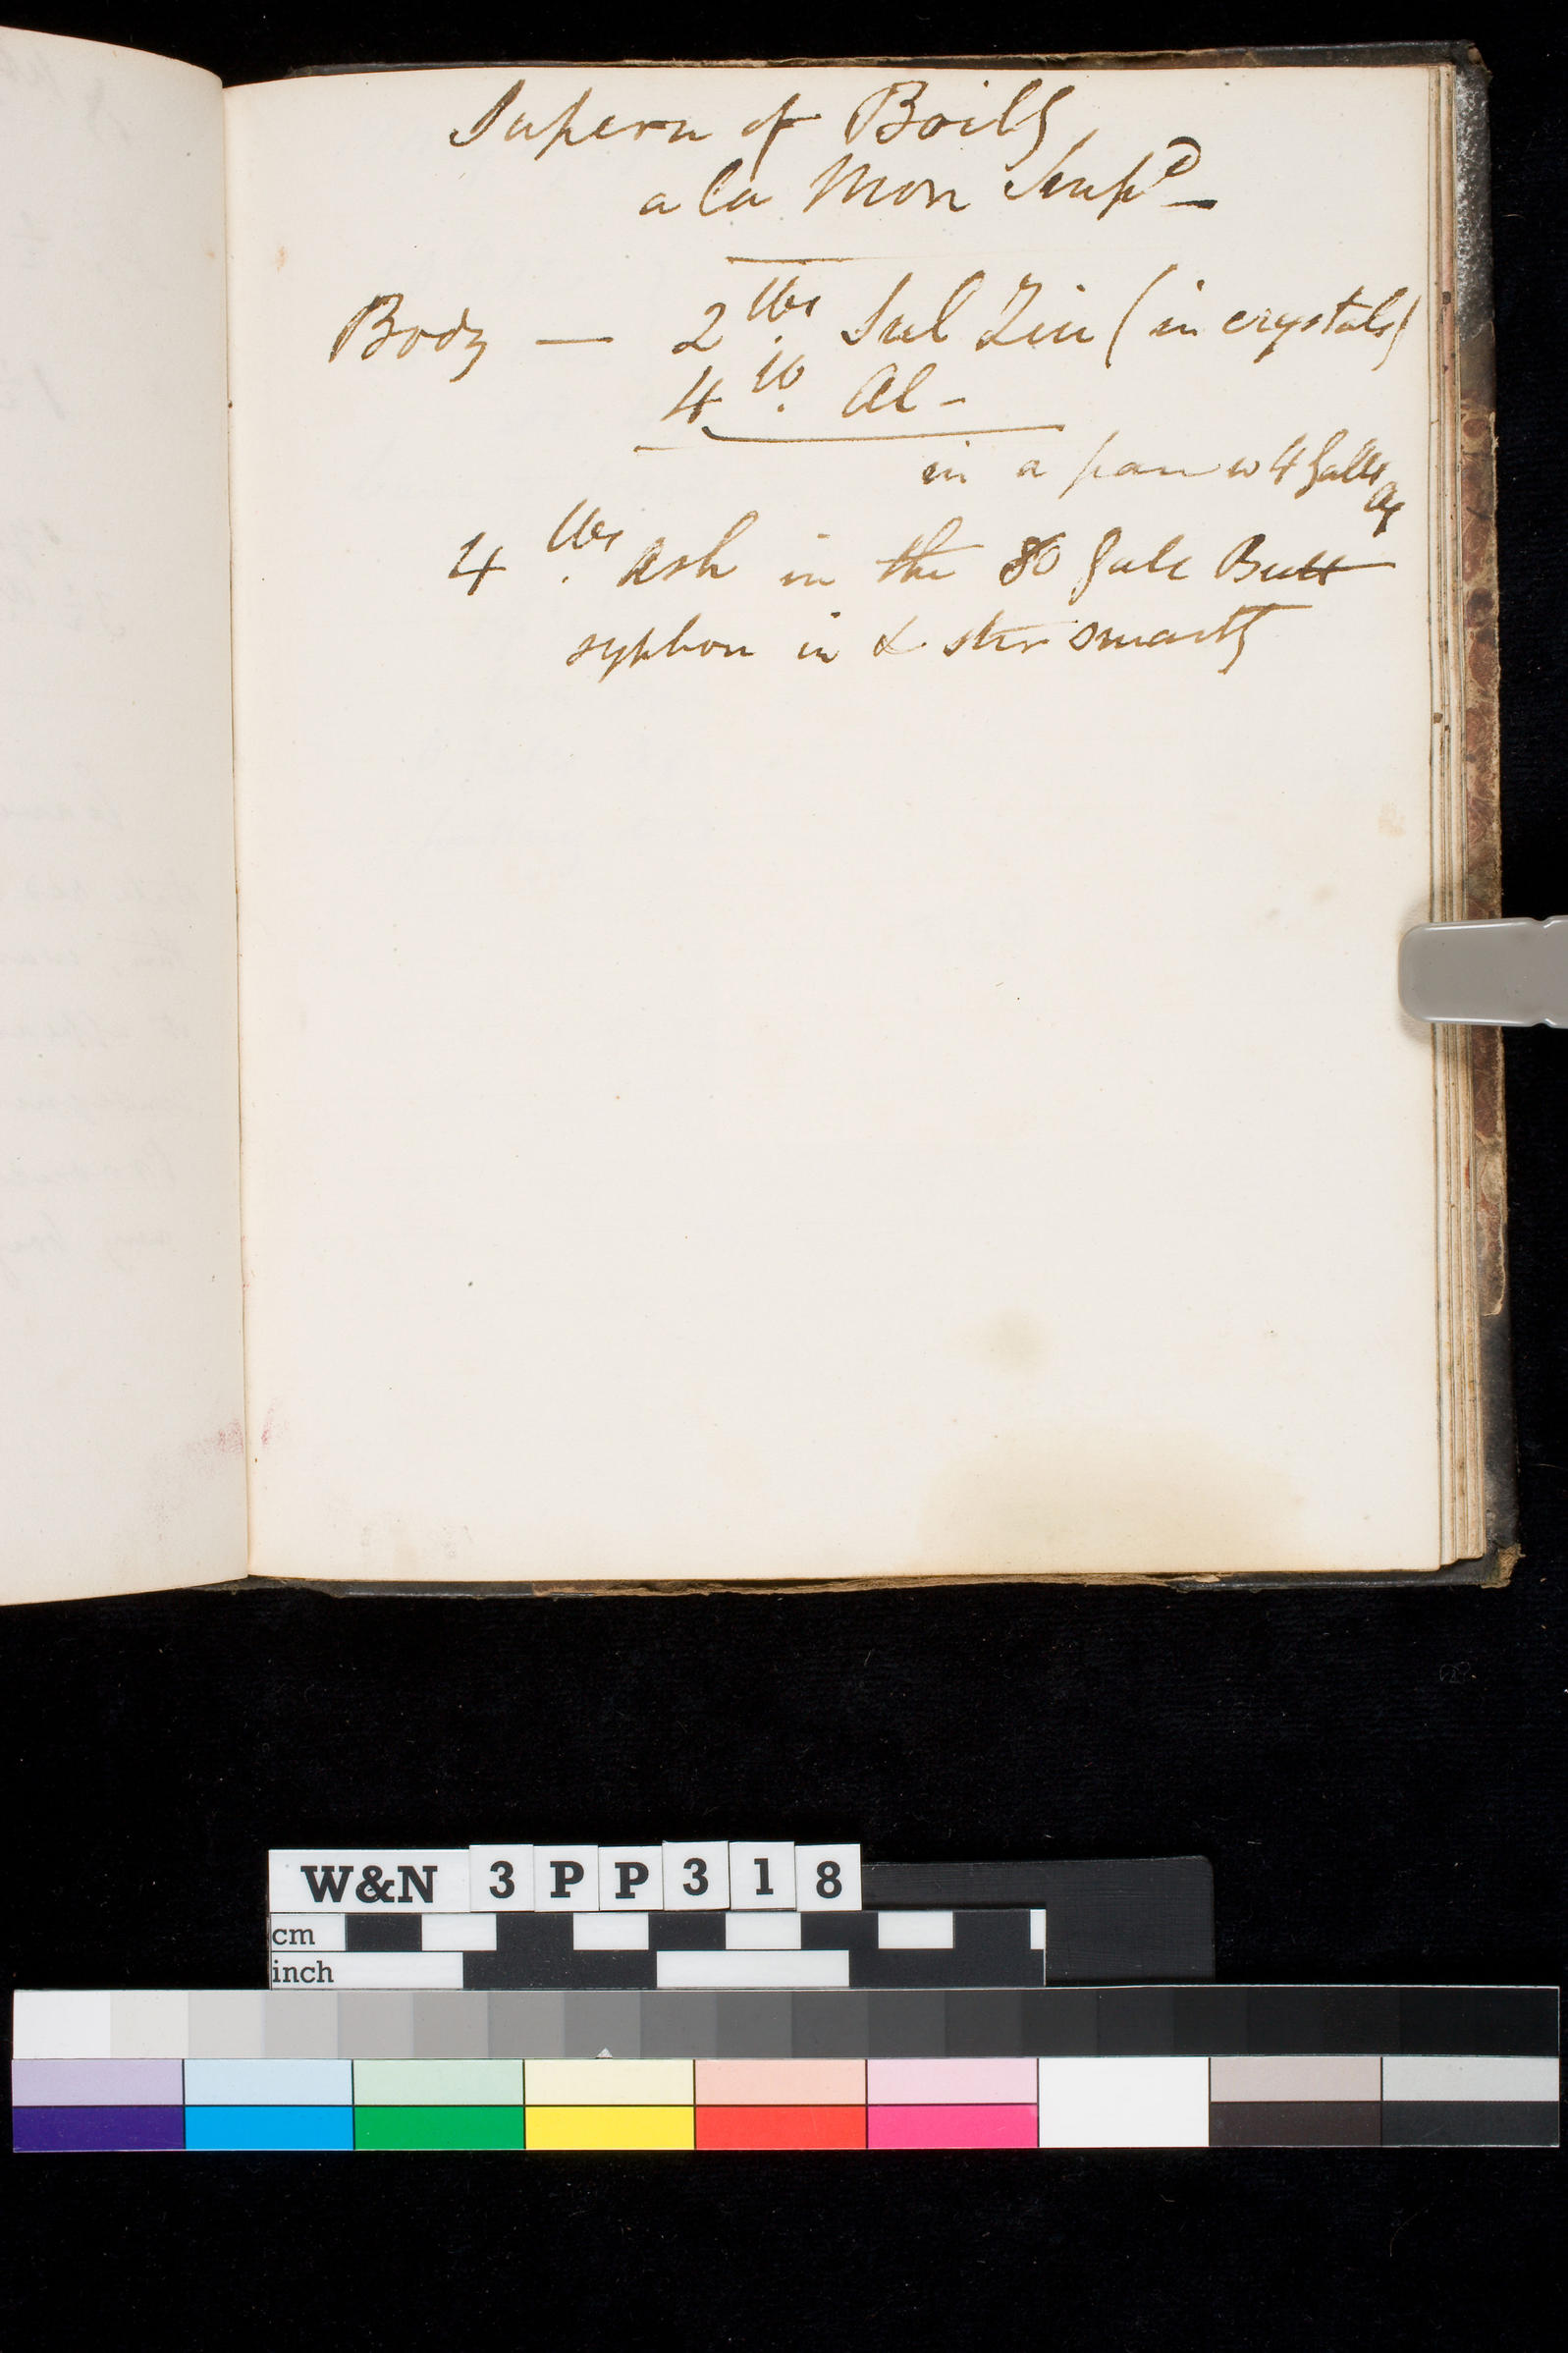 Supern of Boily
a la Mon Sup^d —
Body — 2 lbs Sul Zin (in crystals)
4 lb. Al -
in a pan w 4 galls
Aq
4 lbs Ash in the 80 gall Butt
syphon in & stir smartly
W&N 3PP318
cm
inch